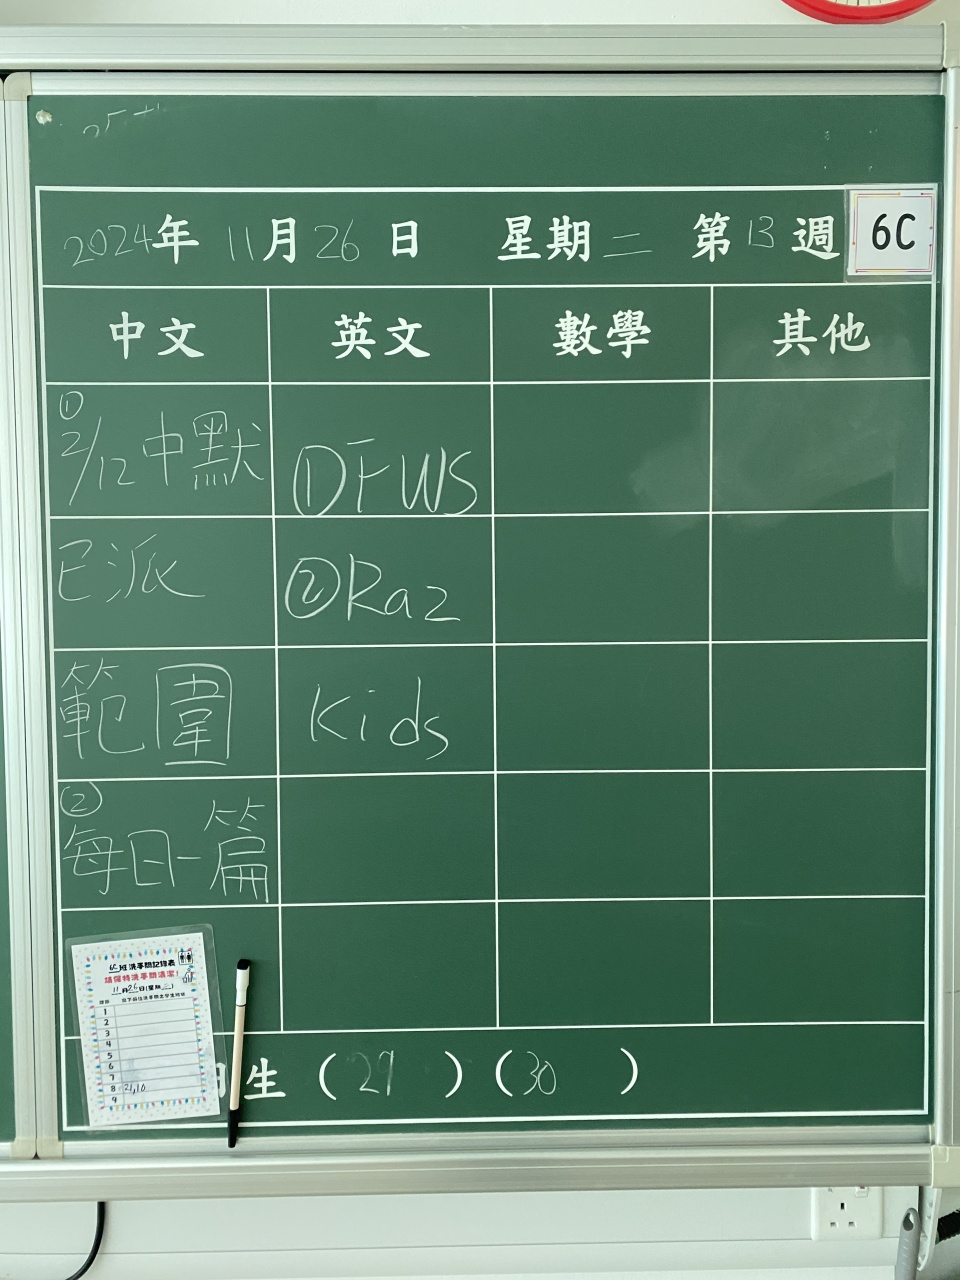 2024年 11月26日 星期二 第13週 6C
中文 英文 數學 其他
①
2/12 中默
已派
範圍
②
每日一篇
①DFWS
②Raz
Kids
6C班洗手間記錄表
請保持洗手間清潔！
11月26日(星期二)
1
2
3
4
5
6
7
8 21,10
9
生 (29) (30)